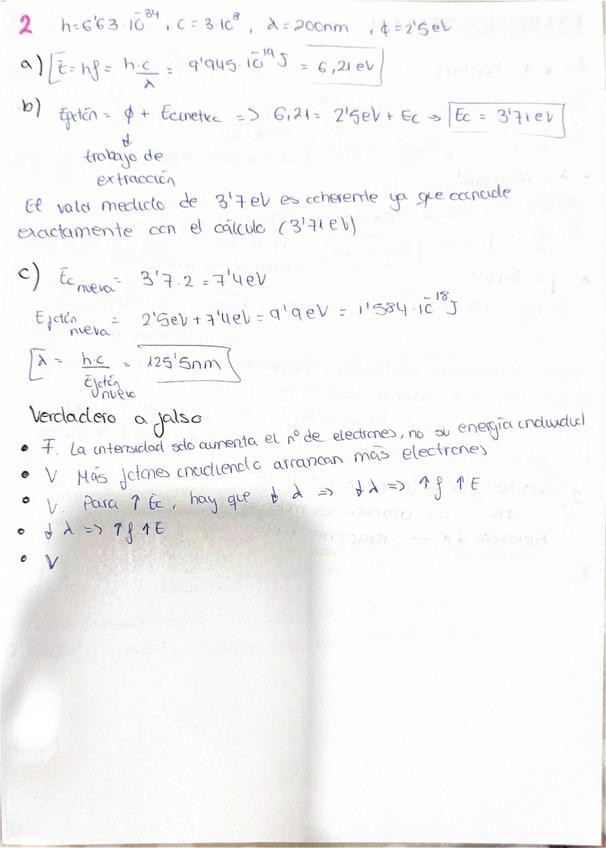 2 h=6'63·10^-34, c=3·10^8, λ=200nm, ϕ=2'5eV
a) E=hf= h·c/λ = 9'945·10^-19 J = 6,21 eV
b) Efotón = ϕ + Ecinética => 6,21= 2'5eV + Ec → Ec = 3'71 eV
↓
trabajo de
extracción
El valor medido de 3'7eV es coherente ya que coincide
exactamente con el cálculo (3'71 eV)
c) Ec nueva = 3'7·2 = 7'4eV
Efotón nueva = 2'5eV+7'4eV = 9'9eV = 1'584·10^-18 J
λ = h·c/Efotón nuevo = 125'5nm
Verdadero o falso
• F. La intensidad solo aumenta el nº de electrones, no su energía individual
• V. Más fotones incidiendo arrancan más electrones
• V. Para ↑ Ec, hay que ↓ λ => ↓λ => ↑f ↑E
• ↓ λ => ↑f ↑E
• V